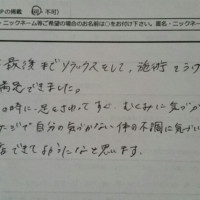 への掲載 可・不可)
ニックネーム等ご希望の場合のお名前は○をお付け下さい。匿名・ニックネ
最後までリラックスをして、施術をうけ
満足できました。
の時に、足をさわってすぐ、むくみに気づか
自分の気づかない体の不調に気づい
できてよかったなと思います。